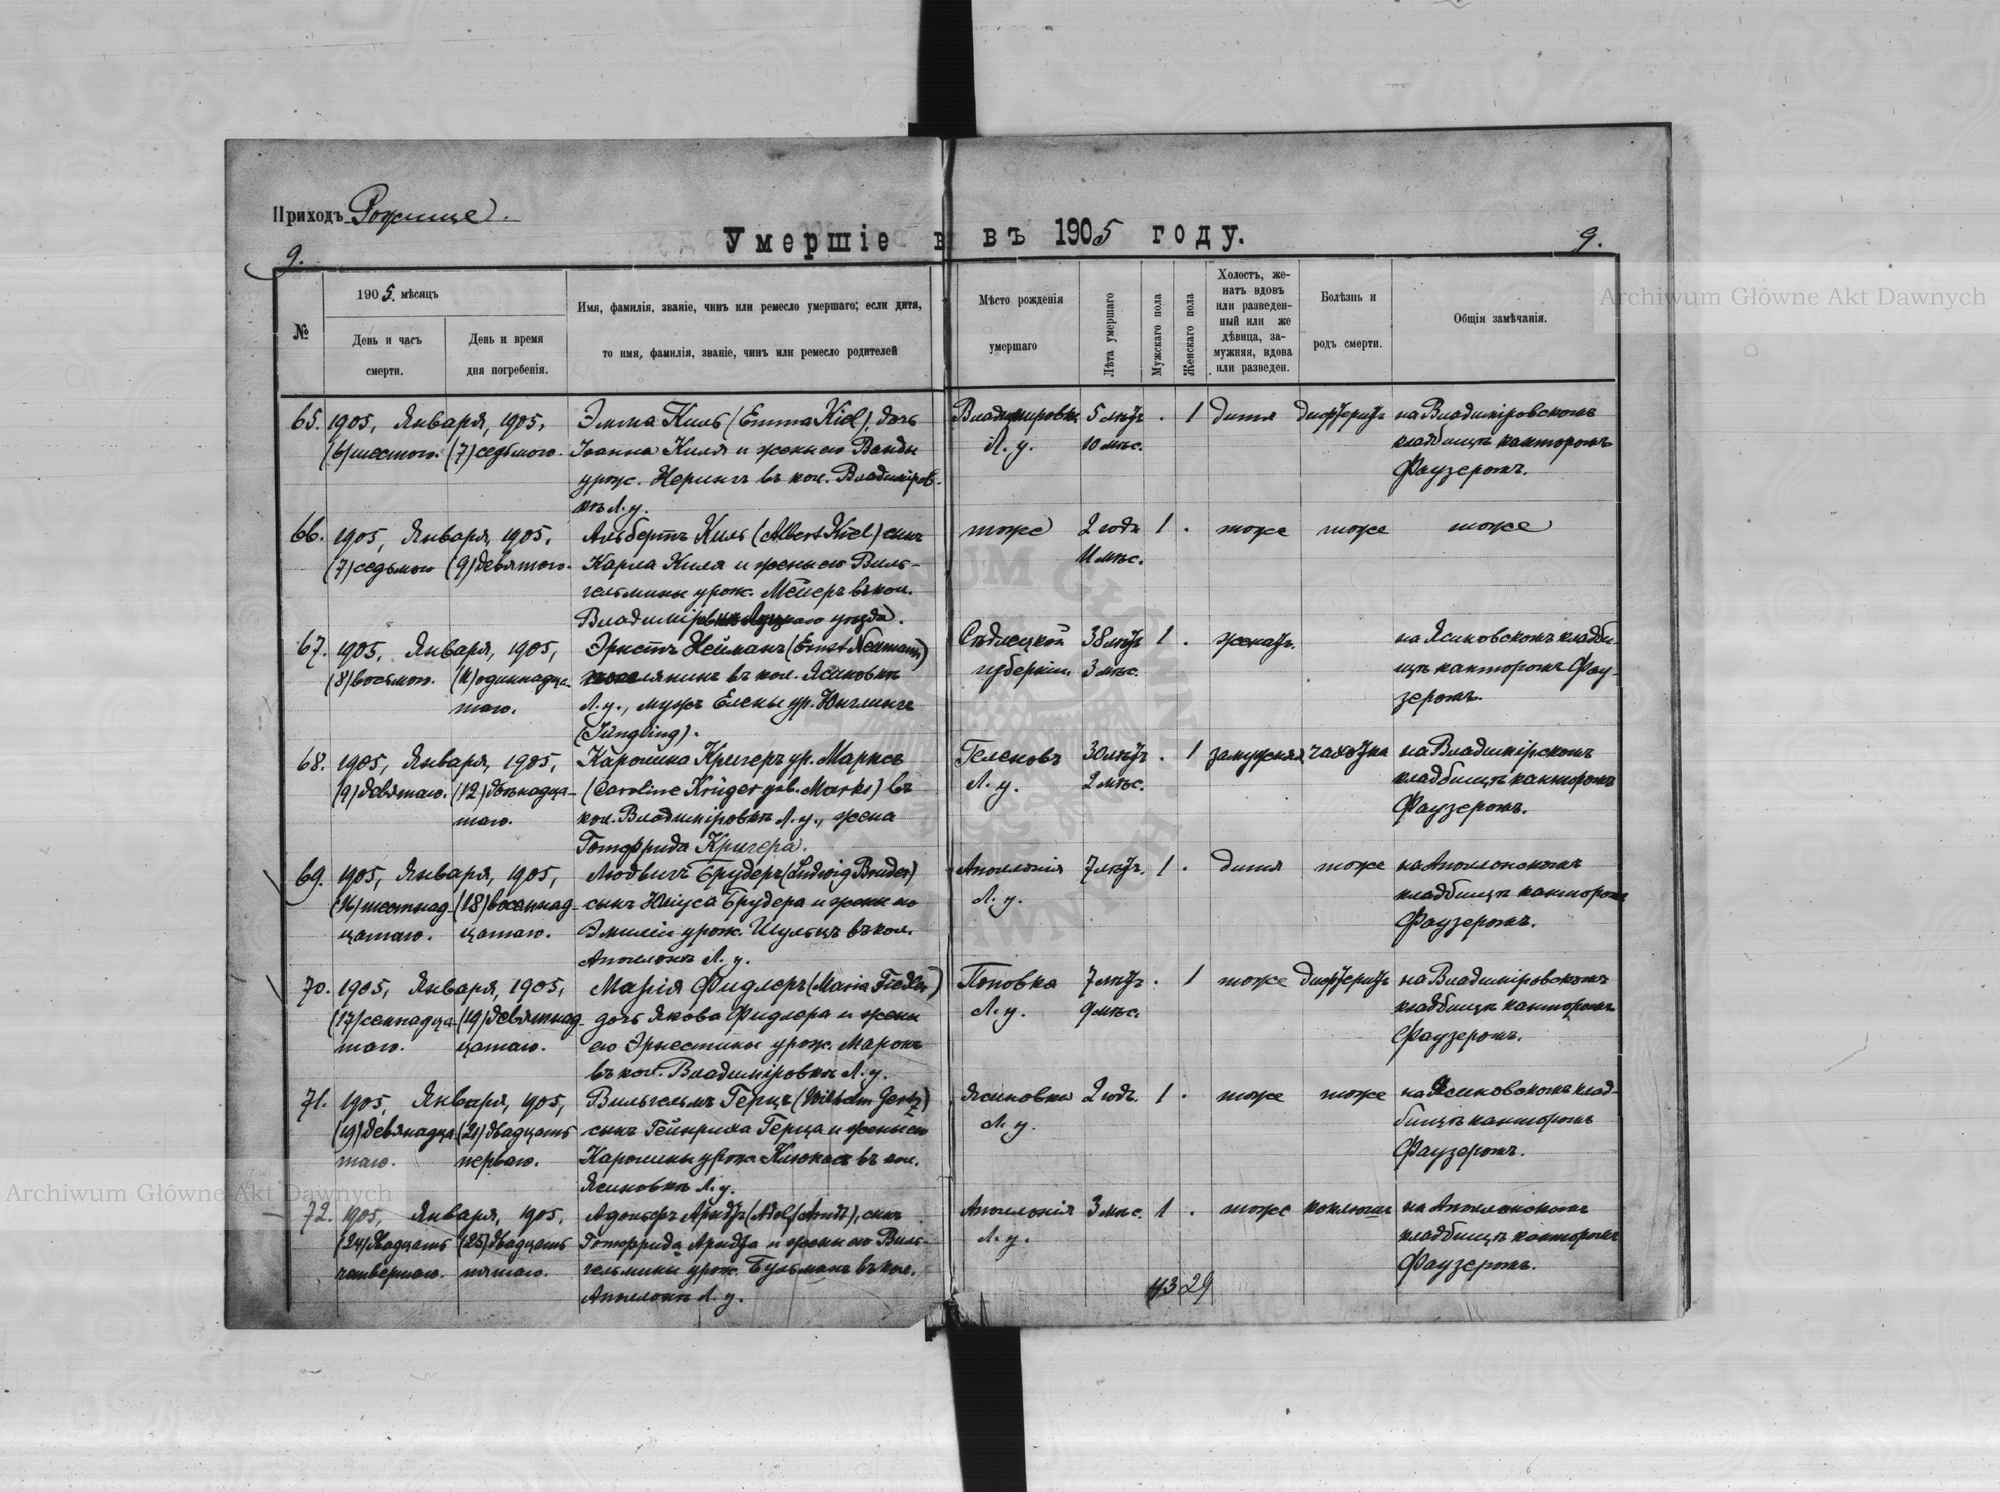 Приходъ Рожище.
Умершіе в въ 1905 году.
9.
9.
№
1905. мѣсяцъ
День и часъ смерти.
День и время дня погребенія.
Имя, фамилія, званіе, чинъ или ремесло умершаго; если дитя,
то имя, фамилія, званіе, чинъ или ремесло родителей
Мѣсто рожденія
умершаго
Лѣта умершаго
Мужскаго пола
Женскаго пола
Холостъ, же-
натъ вдовъ
или разведен-
ный или же
дѣвица, за-
мужняя, вдова
или разведен.
Болѣзнь и
родъ смерти.
Общія замѣчанія.
Archiwum Główne Akt Dawnych
65. 1905, Января, 1905, Эмма Киль (Emma Kiel), дочь Владимировка 5 лѣтъ . 1 дитя дифтеритъ на Владимировскомъ
(6) шестого. (7) седьмого. Іоанна Киля и жены его Ванды Л. у. 10 мѣс. кладбищѣ канторомъ
урож. Нерингъ въ кол. Владиміров- Фаузеромъ.
кѣ Л. у.
66. 1905, Января, 1905, Альбертъ Киль (Albert Kiel) сынъ тоже 2 года 1 . тоже тоже тоже
(7) седьмого (9) девятого. Карла Киля и жены его Виль- 11 мѣс.
гельмины урож. Мейеръ въ кол.
Владиміровкѣ Луцкаго уѣзда.
67. 1905, Января, 1905, Эрнстъ Нейманъ (Ernst Neumann) Сѣдлецкой 38 лѣтъ 1 . женатъ. на Ясиновскомъ кладби-
(8) восьмого. (11) одиннадца- поселянинъ въ кол. Ясиновкѣ губерніи. 3 мѣс. щѣ канторомъ Фау-
таго. Л. у., мужъ Елены ур. Юнглингъ зеромъ.
(Jüngling).
68. 1905, Января, 1905, Каролина Кригеръ ур. Марксъ Геленовъ 30 лѣтъ . 1 замужняя чахотка на Владимірскомъ
(9) девятаго. (12) двѣнадца- (Caroline Krüger geb. Marks) въ Л. у. 2 мѣс. кладбищѣ канторомъ
таго. кол. Владиміровкѣ Л. у., жена Фаузеромъ.
Готфрида Кригера.
69. 1905, Января, 1905, Людвигъ Брудеръ (Ludwig Bruder) Аполлонія 7 лѣтъ. 1 . дитя тоже на Аполлонскомъ
(16) шестнад- (18) восемнад- сынъ Юліуса Брудера и жены его Л. у. кладбищѣ канторомъ
цатаго. цатаго. Эмиліи урож. Шульцъ въ кол. Фаузеромъ.
Л. у.
70. 1905, Января, 1905, Марія Фидлеръ (Maria Fiedler) Поповка 7 лѣтъ . 1 тоже дифтеритъ на Владиміровскомъ
(17) семнадца- (19) девятнад- дочь Якова Фидлера и жены Л. у. 9 мѣс. кладбищѣ канторомъ
таго. цатаго. его Эрнестины урож. Фаузеромъ.
въ кол. Владиміровкѣ Л. у.
71. 1905, Января, 1905, Вильгельмъ Герцъ (Wilhelm Gertz) Ясиновка 2 года. 1 . тоже тоже на Ясиновскомъ клад-
(19) девятнадца- (21) двадцать сынъ Гейнриха Герца и жены его Л. у. бищѣ канторомъ
таго. перваго. Каролины урож. въ кол. Фаузеромъ.
Ясиновкѣ Л. у.
Archiwum Główne Akt Dawnych
72. 1905, Января, 1905, Адольфъ Арндтъ (Adolf Arndt), сынъ Аполлонія 3 мѣс. 1 . тоже коклюшъ на Аполлонскомъ
(24) двадцать (25) двадцать Готфрида Арндта и жены его Виль- Л. у. кладбищѣ канторомъ
четвертаго. пятаго. гельмины урож. въ кол. Фаузеромъ.
Л. у.
43 29